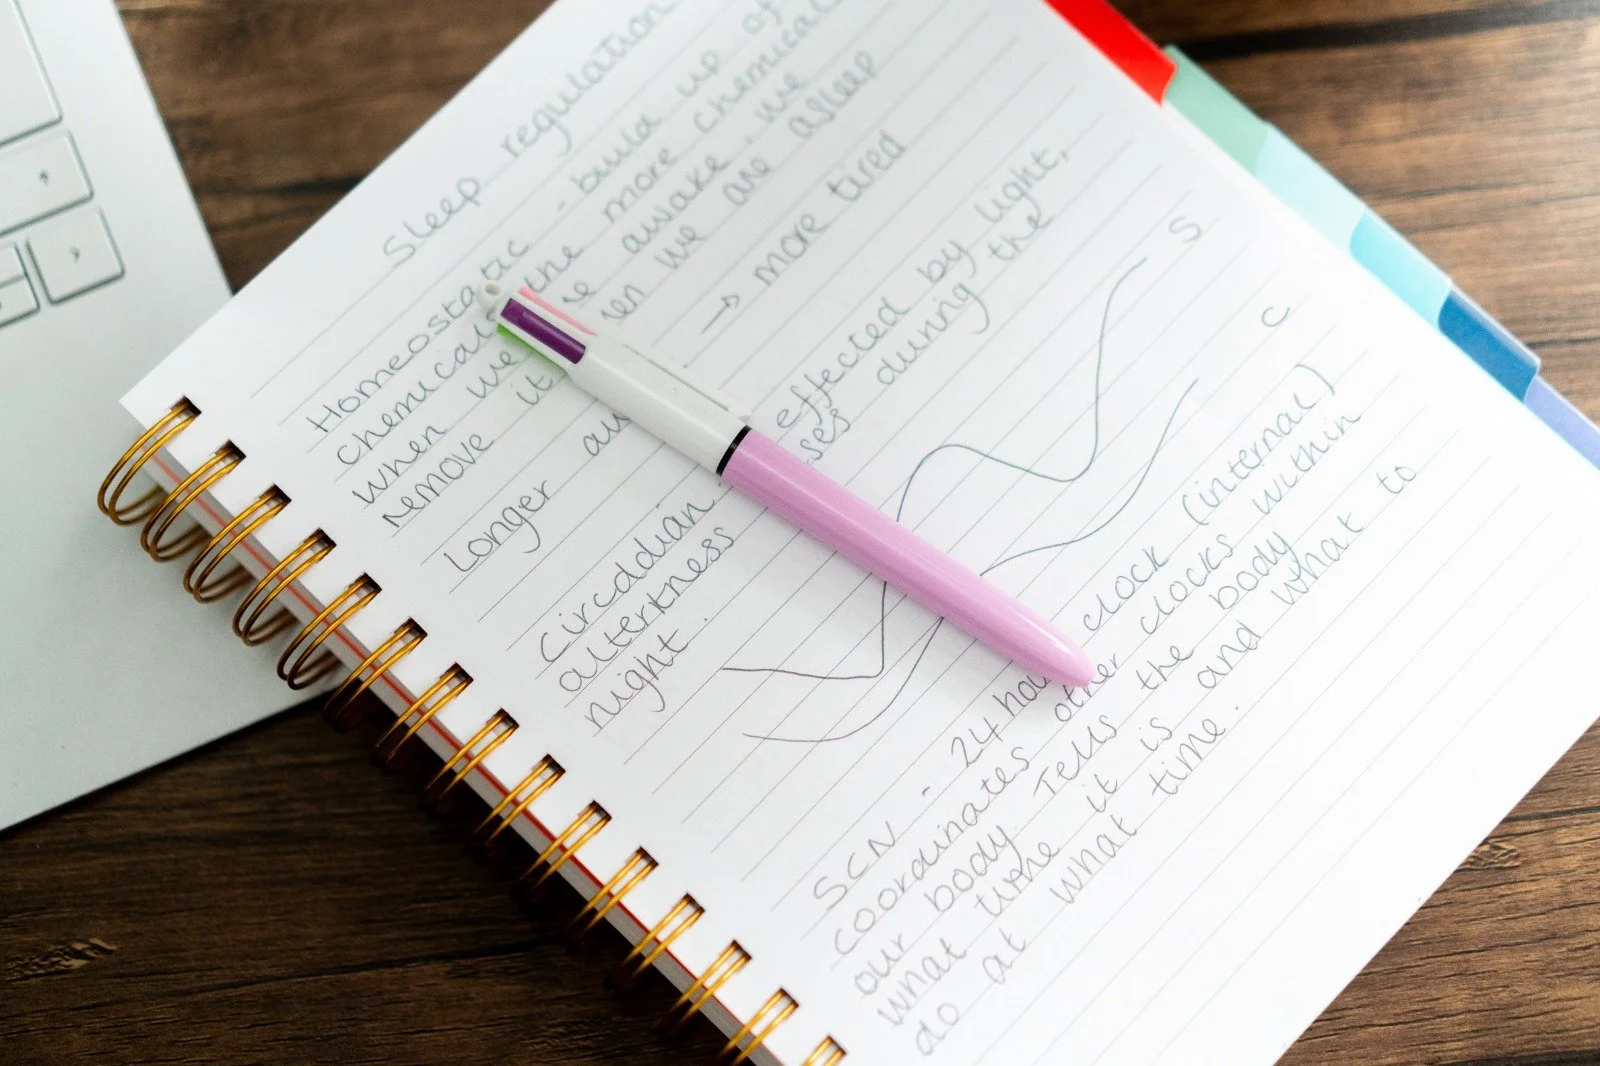 Sleep regulation
Homeostatic - build up of
chemicals the more chemical
when we awake. we
remove it when we are asleep
Longer → more tired
circddian effected by light,
alterkness during the
night.
S
C
SCN - 24 hour clock (internal)
coordinates other clocks within
our body. Tells the body
what time it is and what to
do at what time.